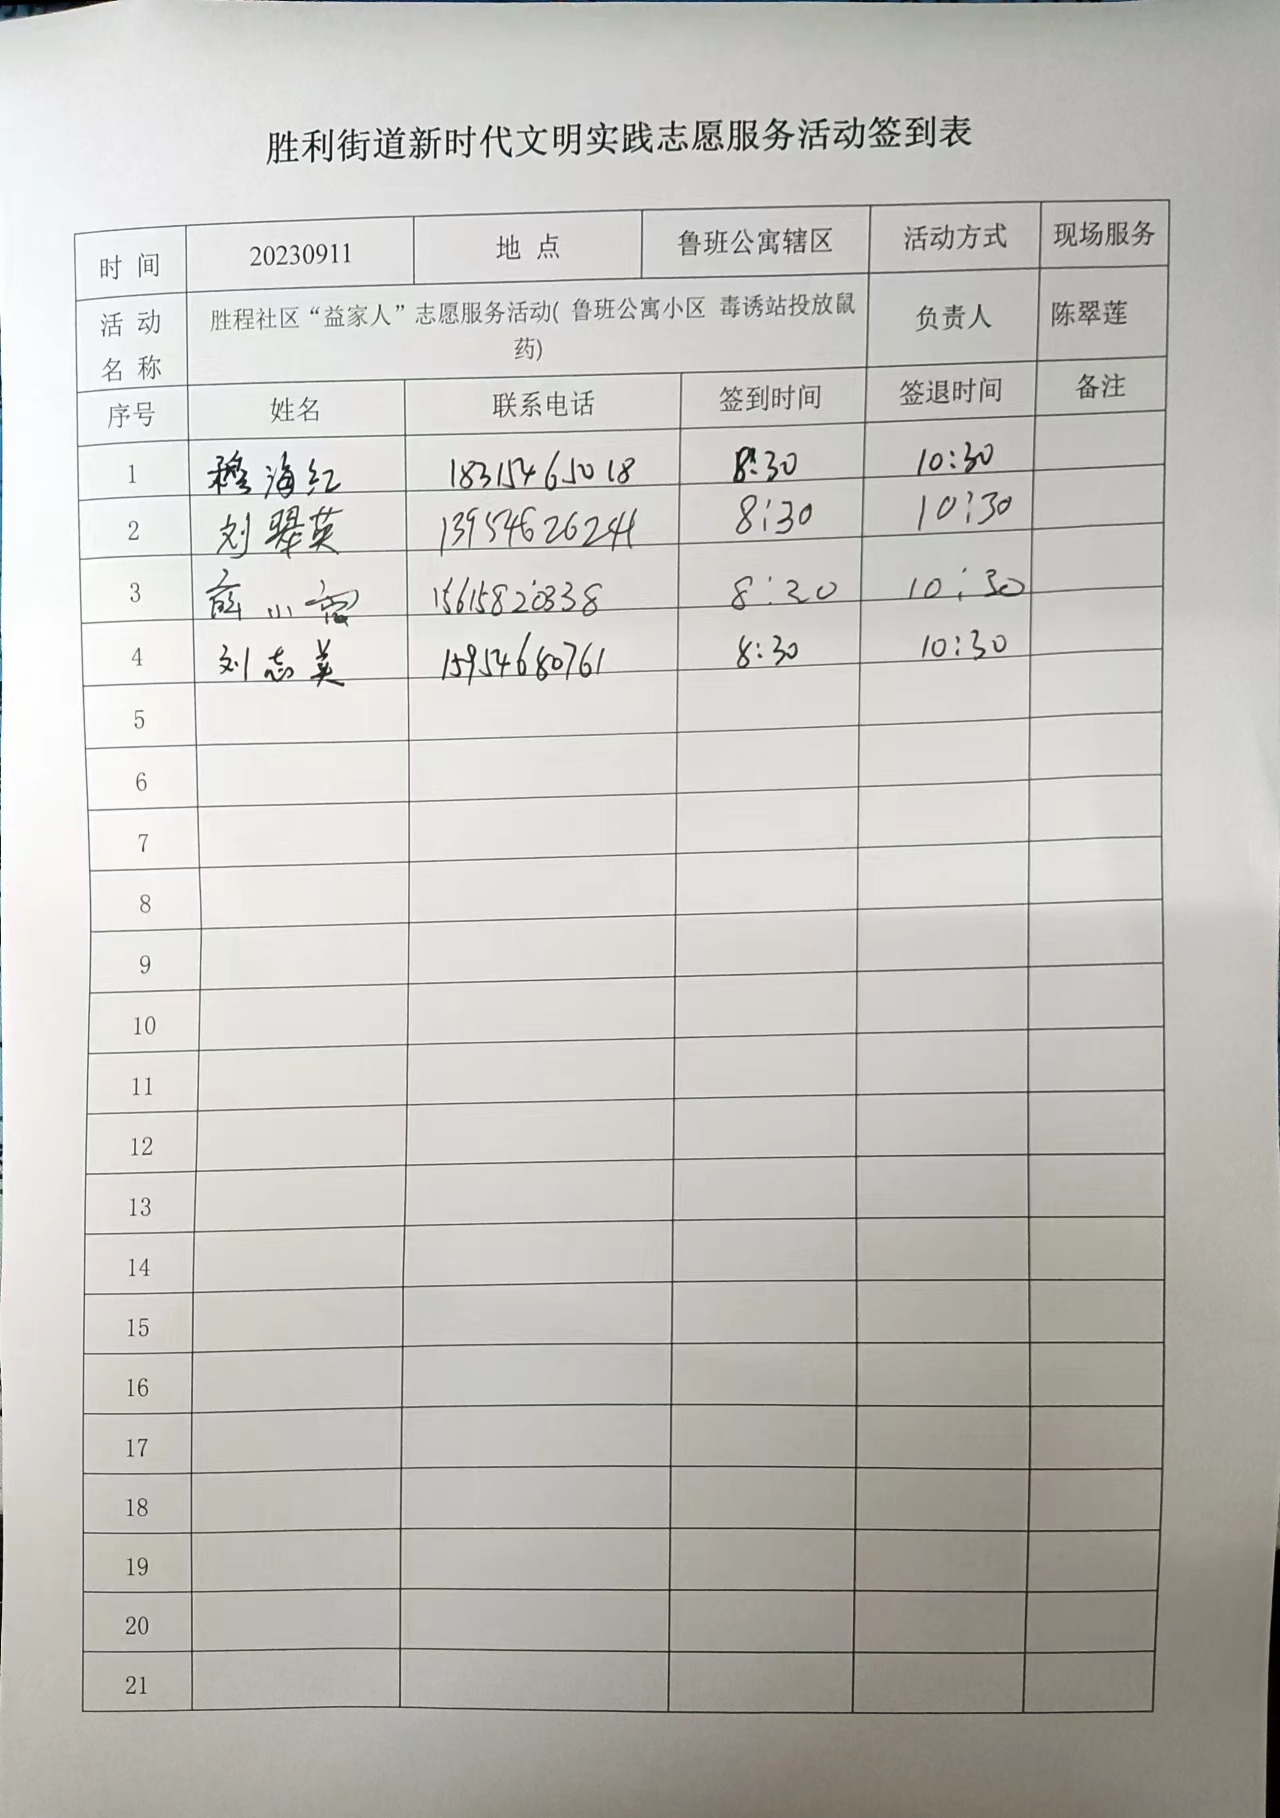 胜利街道新时代文明实践志愿服务活动签到表
时 间 20230911 地 点 鲁班公寓辖区 活动方式 现场服务
活 动 名 称 胜程社区“益家人”志愿服务活动( 鲁班公寓小区 毒诱站投放鼠 药) 负责人 陈翠莲
序号 姓名 联系电话 签到时间 签退时间 备注
1 穆海红 18315465018 8:30 10:30
2 刘翠英 13954626241 8:30 10:30
3 薛小 15615820338 8:30 10:30
4 刘志英 15954680761 8:30 10:30
5
6
7
8
9
10
11
12
13
14
15
16
17
18
19
20
21